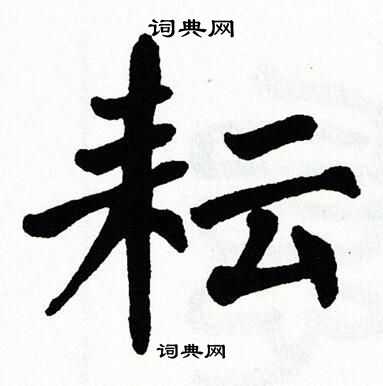 词典网
耘
词典网